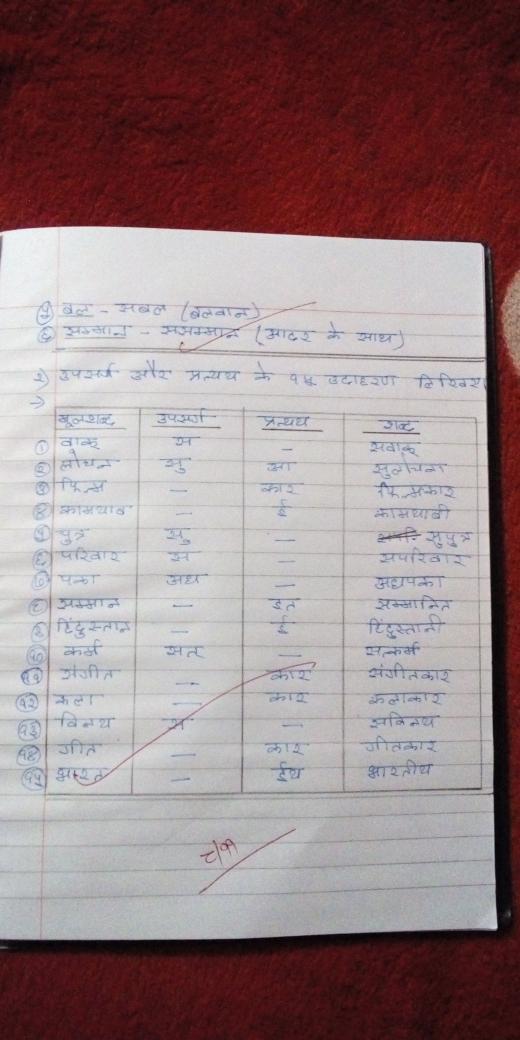 ५) बल - सबल (बलवान)
६) सम्मान - ससम्मान (आदर के साथ)
२) उपसर्ग और प्रत्यय के १५ उदाहरण लिखिए।
→
मूलशब्द उपसर्ग प्रत्यय शब्द
१ वाक् स — सवाक्
२ लोचन सु आ सुलोचना
३ फिल्म — कार फिल्मकार
४ कामयाब — ई कामयाबी
५ पुत्र सु — सुपुत्र
६ परिवार स — सपरिवार
७ पका अध — अधपका
८ सम्मान — इत सम्मानित
९ हिंदुस्तान — ई हिंदुस्तानी
१० कर्म सत — सत्कर्म
११ संगीत — कार संगीतकार
१२ कला — कार कलाकार
१३ विनय स — सविनय
१४ गीत — कार गीतकार
१५ भारत — ईय भारतीय